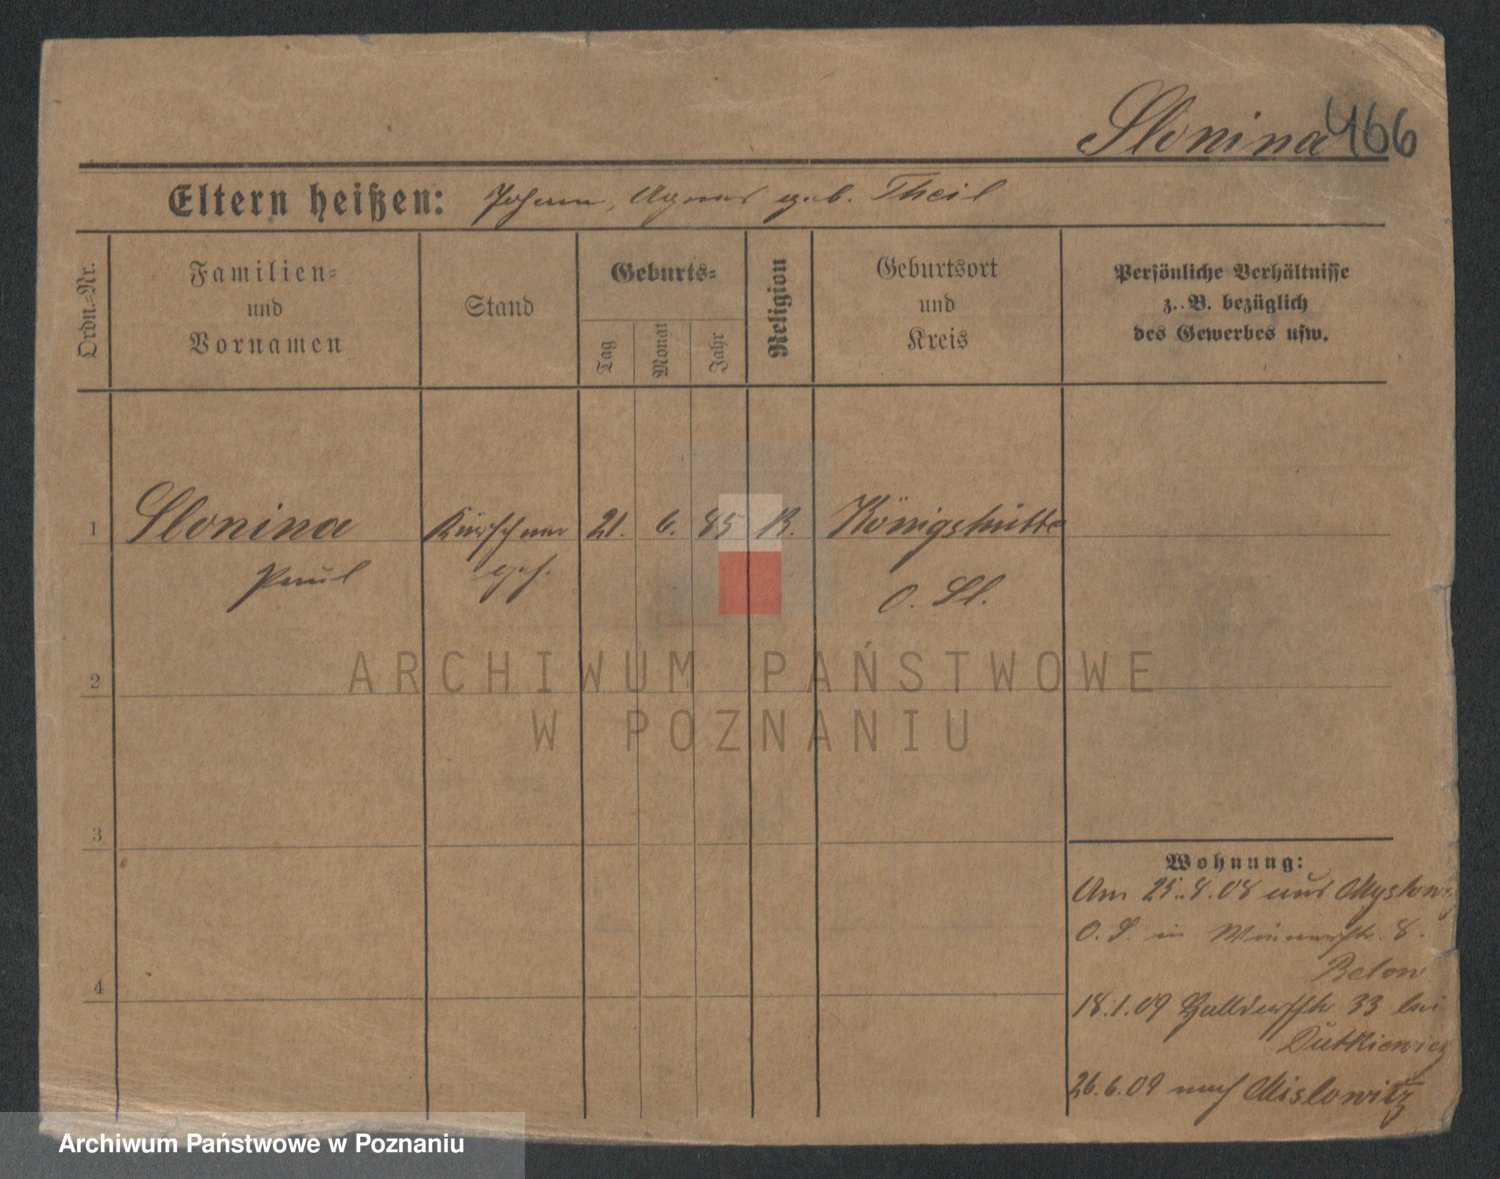 Slonina 466
Eltern heißen: Johann, Agnes geb. Theil
Ordn.=Nr.
Familien=
und
Vornamen
Stand
Geburts=
Tag
Monat
Jahr
Religion
Geburtsort
und
Kreis
Persönliche Verhältnisse
z. B. bezüglich
des Gewerbes usw.
1 Slonina Kürschner 21. 6. 85 K. Königshütte
Paul ges. O. Sl.
2
3
4
Wohnung:
Am 25.8.08 aus Myslow
O. S. in 8.
Belon
18.1.09 33 bei
Dutkiewicz
26.6.09 nach Mislowitz
ARCHIWUM PAŃSTWOWE
W POZNANIU
Archiwum Państwowe w Poznaniu